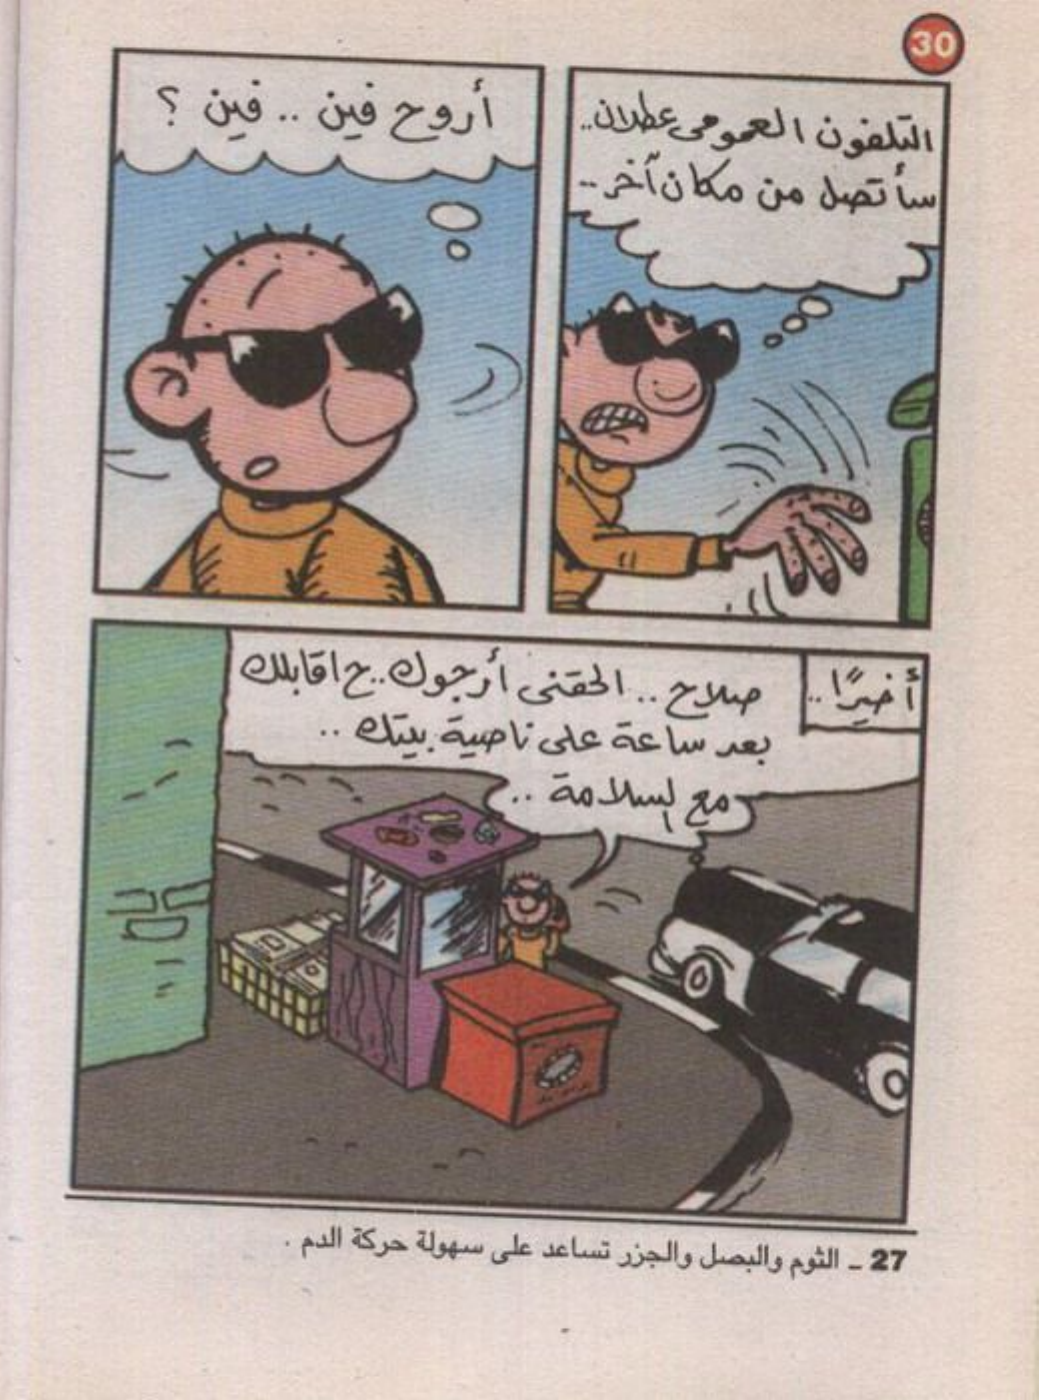 30
التلفون العمومى عطلان..
سأتصل من مكان آخر..
أروح فين .. فين ؟
أخيرًا..
صلاح .. الحقنى أرجوك.. ح اقابلك
بعد ساعة على ناصية بيتك ..
مع السلامة ..
27 ــ الثوم والبصل والجزر تساعد على سهولة حركة الدم .